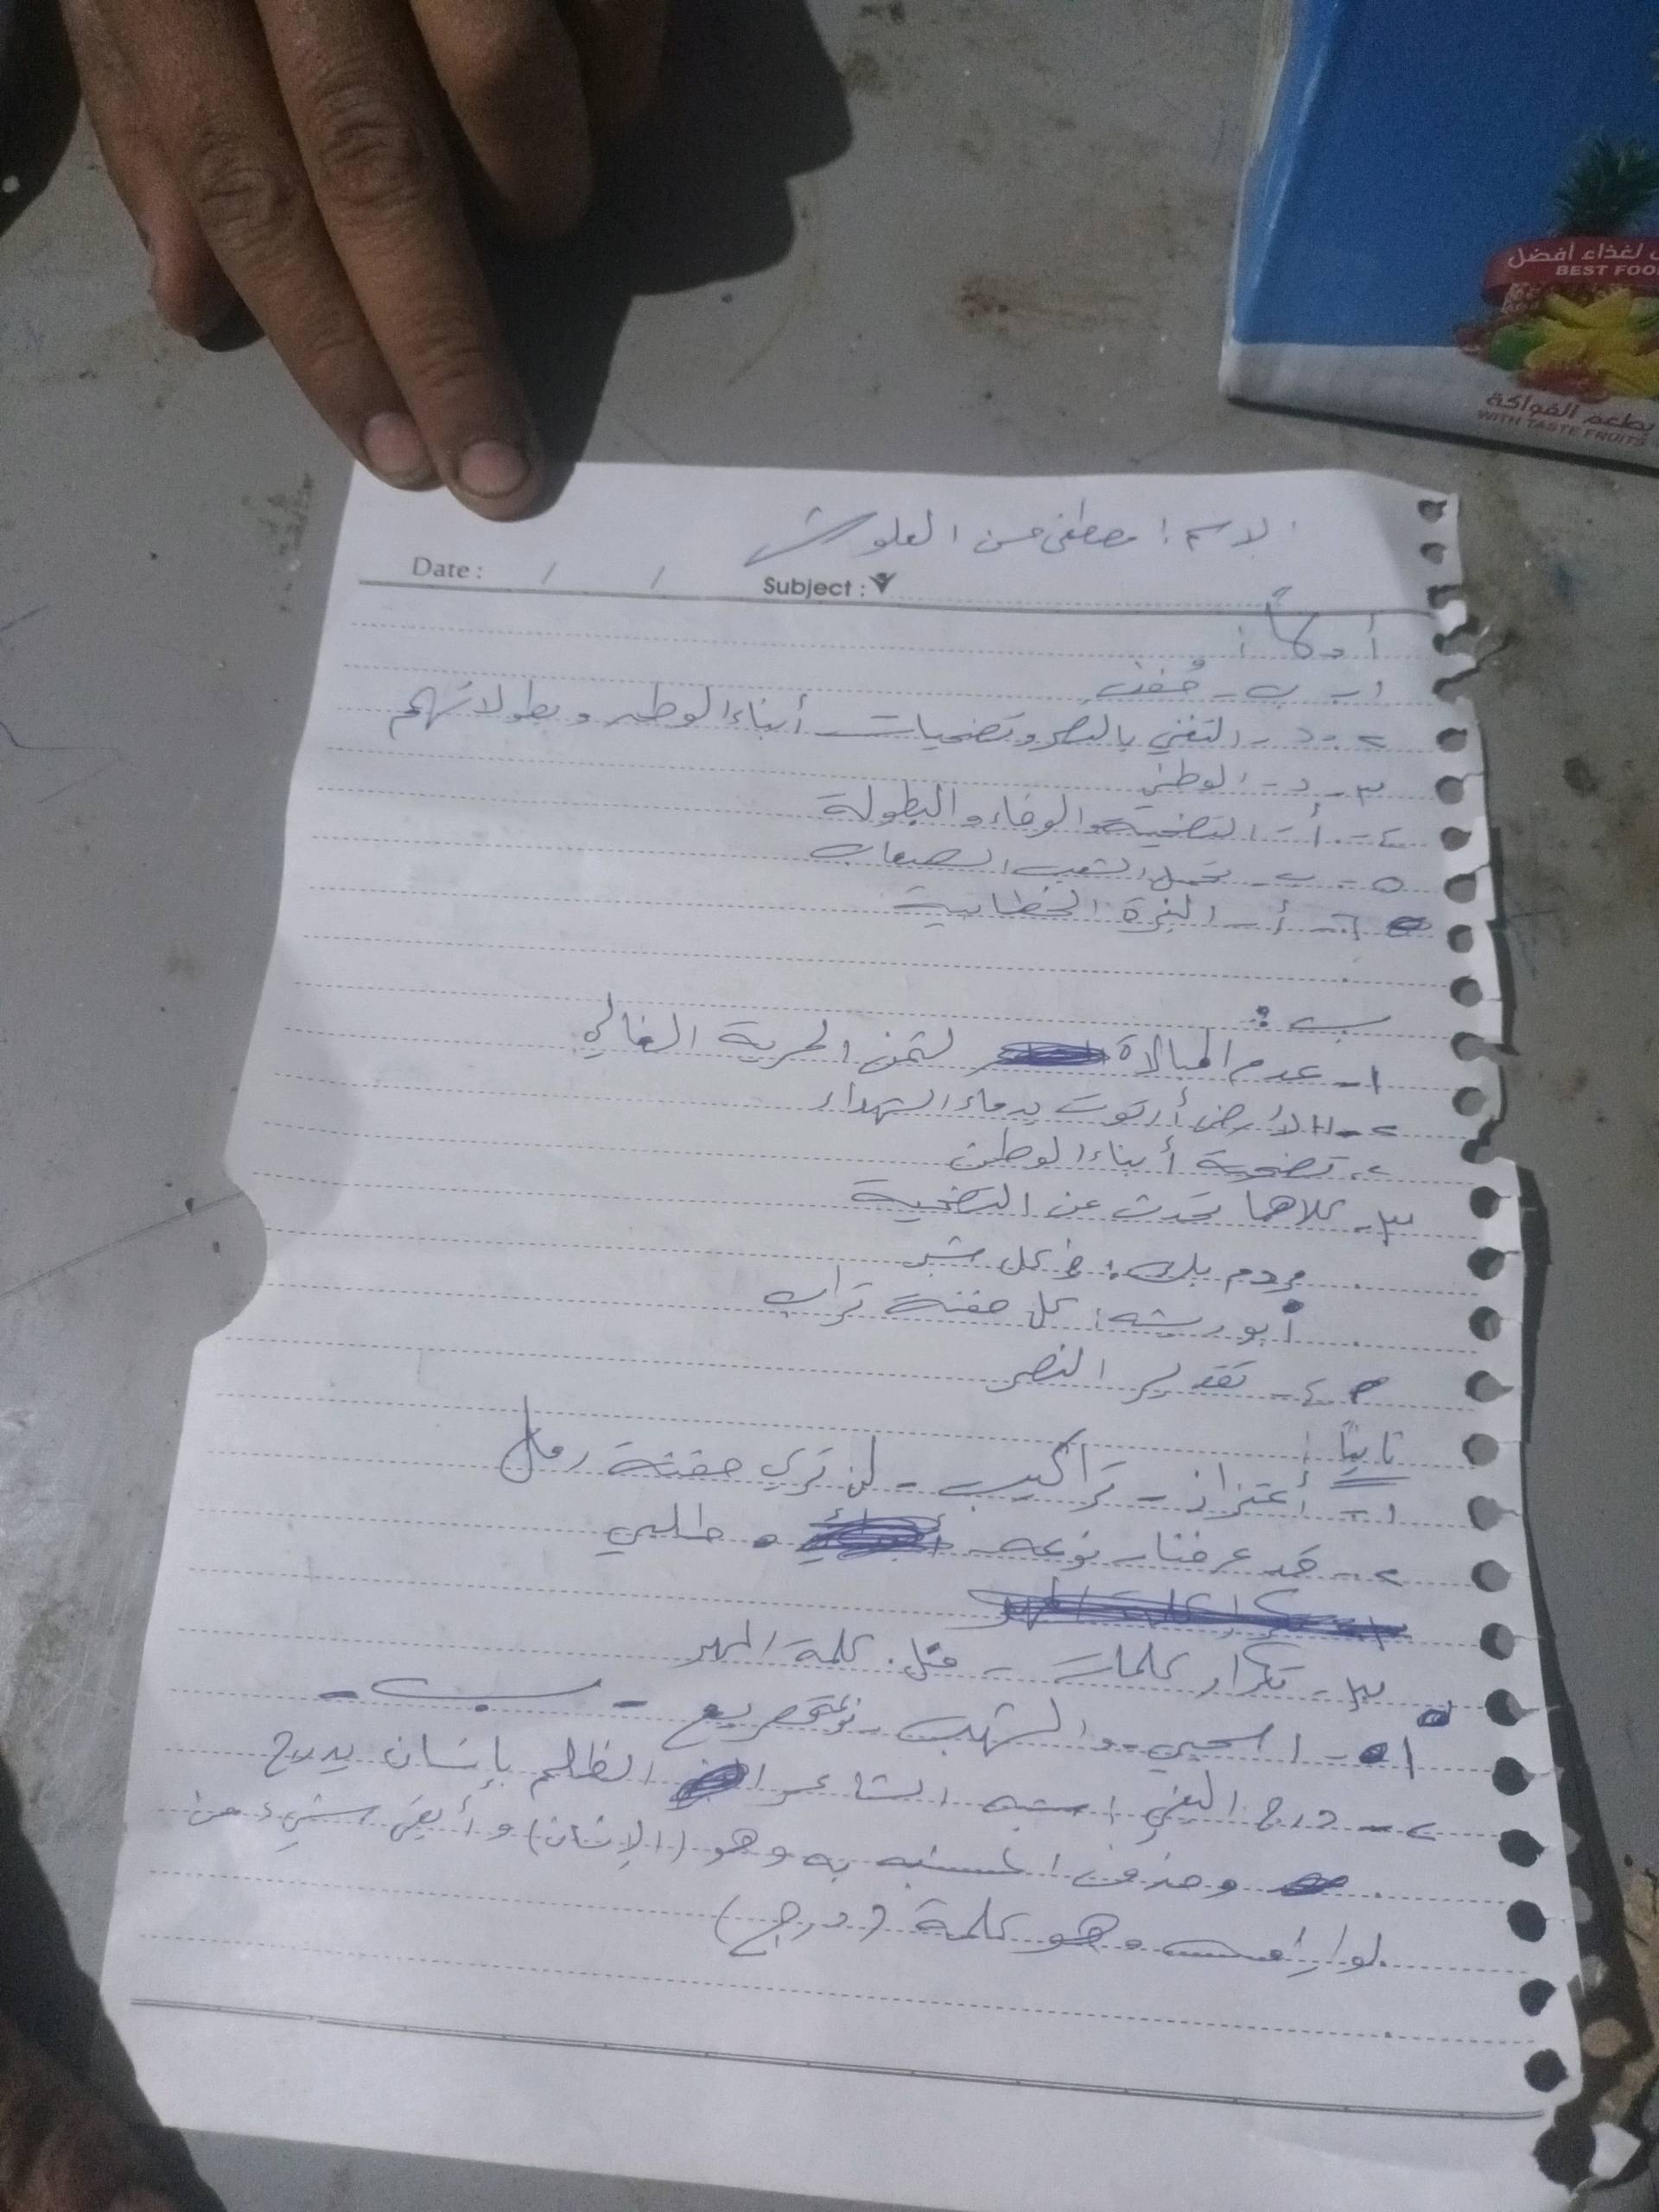 لغذاء أفضل
BEST FOO
بطعم الفواكة
WITH TASTE FRUITS
الاسم: مصطفى حسن العلوش
Date: / / Subject:
أولاً:
١- ب- حُفن
٢- د- التغني بالنصر وتضحيات أبناء الوطن وبطولاتهم
٣- د- الوطني
٤- أ- التضحية والوفاء والبطولة
٥- ب- تحمل الشعب الصعاب
٦- أ- النبرة الخطابية
ب:
١- عدم المبالاة لثمن الحرية الغالي
٢- الأرض أرتوت بدماء الشهداء
٢- تضحية أبناء الوطن
٣- كلاهما تحدث عن التضحية
مردم بك: في كل شبر
أبو ريشه: كل حفنة تراب
٤- تقدير النصر
ثانياً:
١- أعتزاز - تراكيب - لن تري حفنة رمل
٢- قد عرفنا - نوعه - طلبي
٣- تكرار كلمات - مثل كلمة المهر
- ب -
١- اسحبي - والشهب - نوع تصريع
٢- درج البغي شبه الشاعر الظلم بإنسان يدرج
وحذف المشبه به وهو (الإنسان) وأبقى شيء من
لوازمه وهو كلمة (درج)